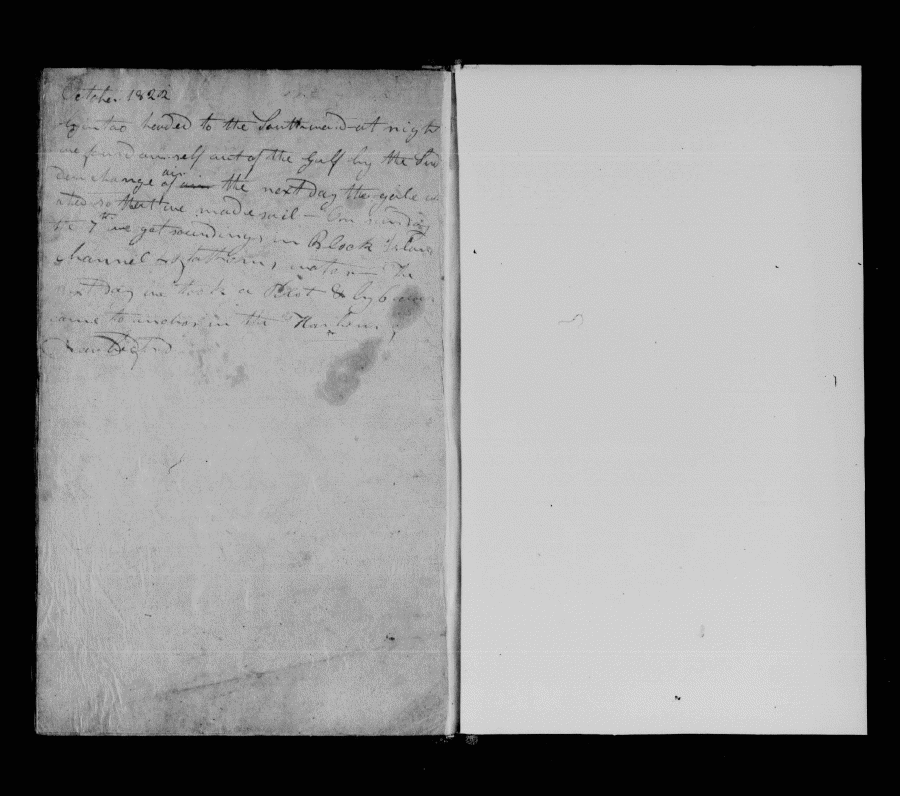 October 1822
headed to the Southward at night
we found ourself out of the Gulf by the Sud
den change of air the next day the gale
ated so that we made sail – On sunday
the 7th we got soundings in Block Island
Channel fathoms water – The
next day we took a Pilot & by 6
came to anchor in the Harbour of